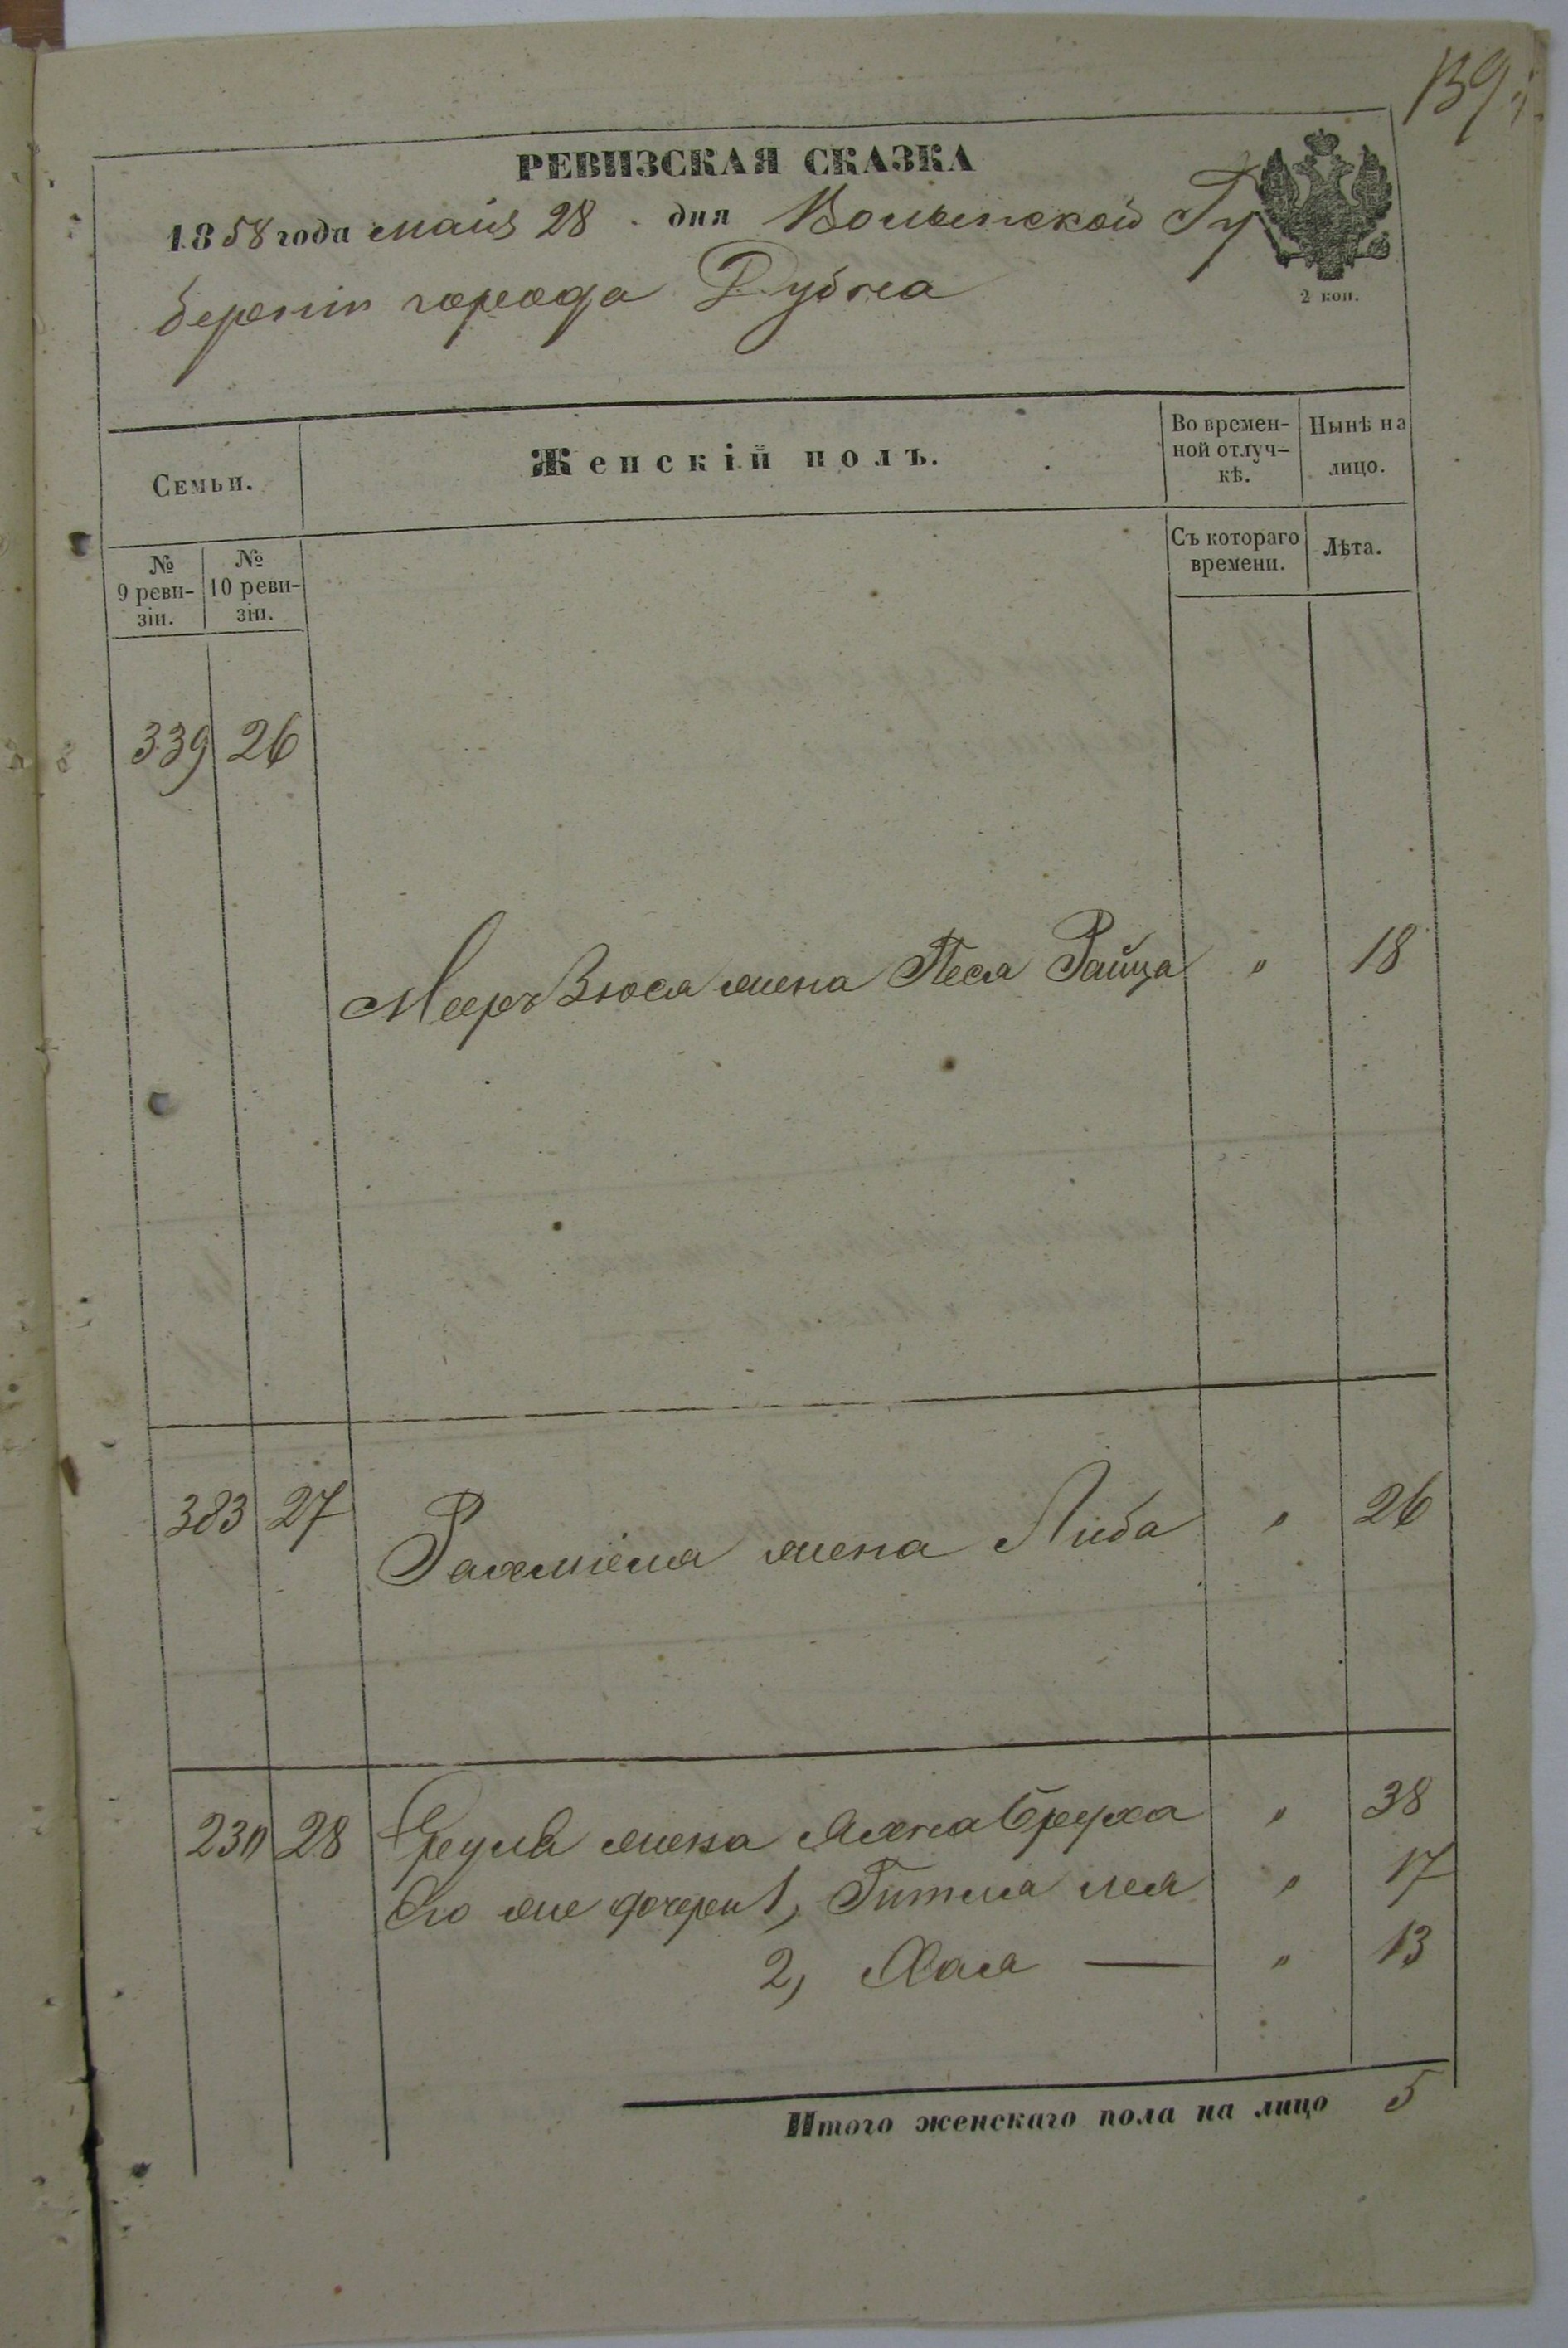 139
РЕВИЗСКАЯ СКАЗКА
1858 года маія 28 дня Волынской Гу
берніи города Дубна
2 коп.
Семьи.
Женскій полъ.
Во времен-
ной отлуч-
кѣ.
Нынѣ на
лицо.
№
9 реви-
зіи.
№
10 реви-
зіи.
Съ котораго
времени.
Лѣта.
339 26
Мееръ Зюся жена Песя Райца " 18
383 27
Рахміеля жена Либа " 26
230 28 жена Бруха " 38
Его же дочери 1, Гитля лея " 17
2, Хая — " 13
Итого женскаго пола на лицо 5